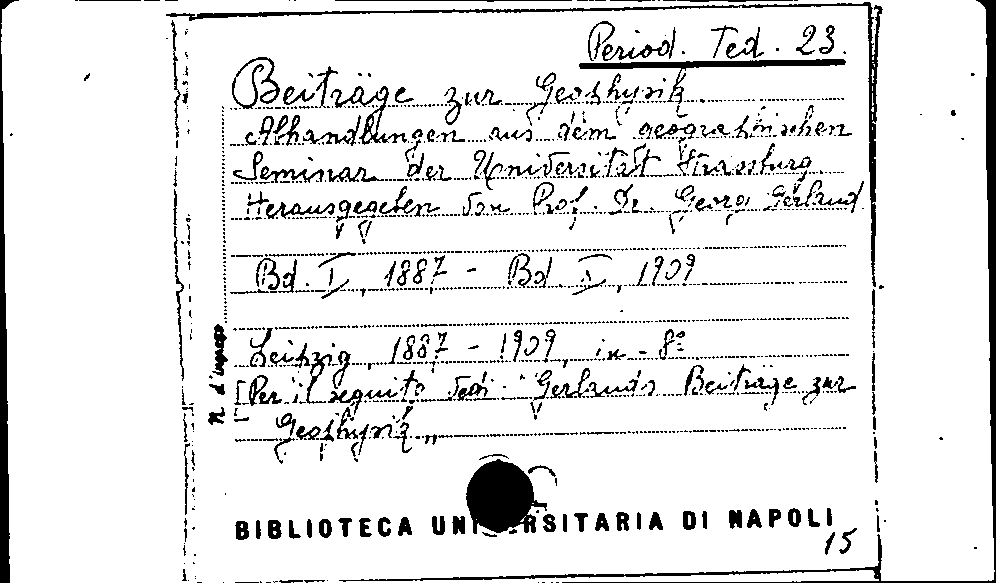 Period. Ted. 23.
Beiträge zur Geophysik.
Abhandlungen aus dem geographischen
Seminar der Universität Strassburg.
Herausgegeben von Prof. Dr. Georg Gerland
Bd. I, 1887 - Bd. X, 1909
Leipzig, 1887 - 1909, in - 8º
[Per il seguito vedi "Gerlands Beiträge zur
Geophysik"
N. d'ingresso
BIBLIOTECA UNIVERSITARIA DI NAPOLI
15